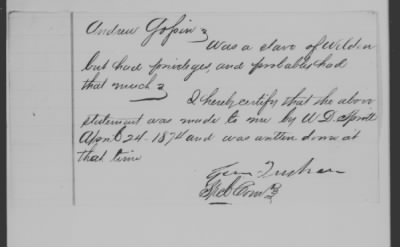 Andrew Gofsin
Was a slave of Wilden
but had privileges, and probably had
that much
I hereby certify that the above
statement was made to me by W. D. Sprott
April 24 - 1874 and was written down at
that time
Geo Tucker